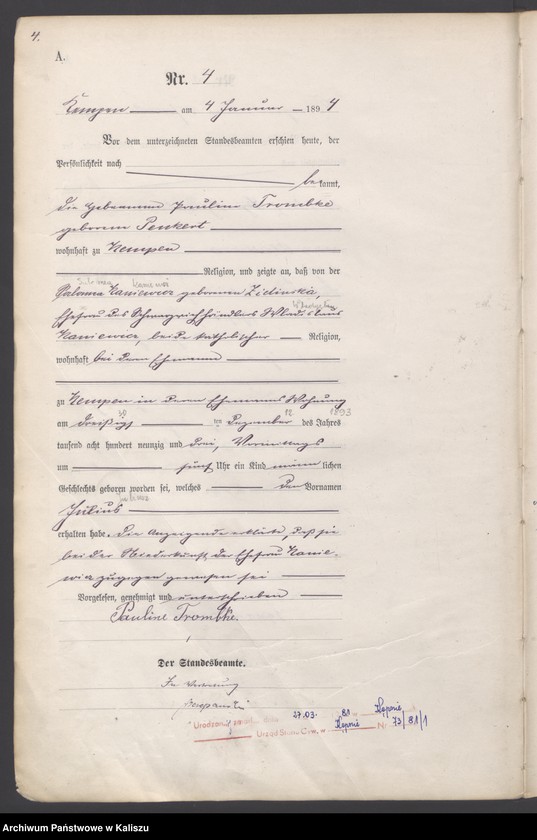 4.
A.
Nr. 4
Kempen am 4 Januar 1894
Vor dem unterzeichneten Standesbeamten erschien heute, der
Persönlichkeit nach
bekannt,
die Hebeamme Pauline Trombke
geborene Penkert
wohnhaft zu Kempen
Religion, und zeigte an, daß von der
Salomea Kaniewicz geborenen Zielinska,
Ehefrau des Wladislaus
Kaniewicz, beide katholischer Religion,
wohnhaft bei dem Ehemanne
zu Kempen in deren Ehemanns Wohnung
30 12 1893
am dreißigsten Dezember des Jahres
tausend acht hundert neunzig und drei, Vormittags
um fünf Uhr ein Kind männlichen
Geschlechts geboren worden sei, welches den Vornamen
Julius
erhalten habe. Die Anzeigende erklärte, daß sie
bei der Niederkunft der Ehefrau Kanie-
wicz zugegen gewesen sei
Vorgelesen, genehmigt und unterschrieben
Pauline Trombke.
Der Standesbeamte.
In Vertretung
27.03. 81 Kępnie
Urząd Stanu Cyw. w Kępnie Nr 73/81/1
Archiwum Państwowe w Kaliszu